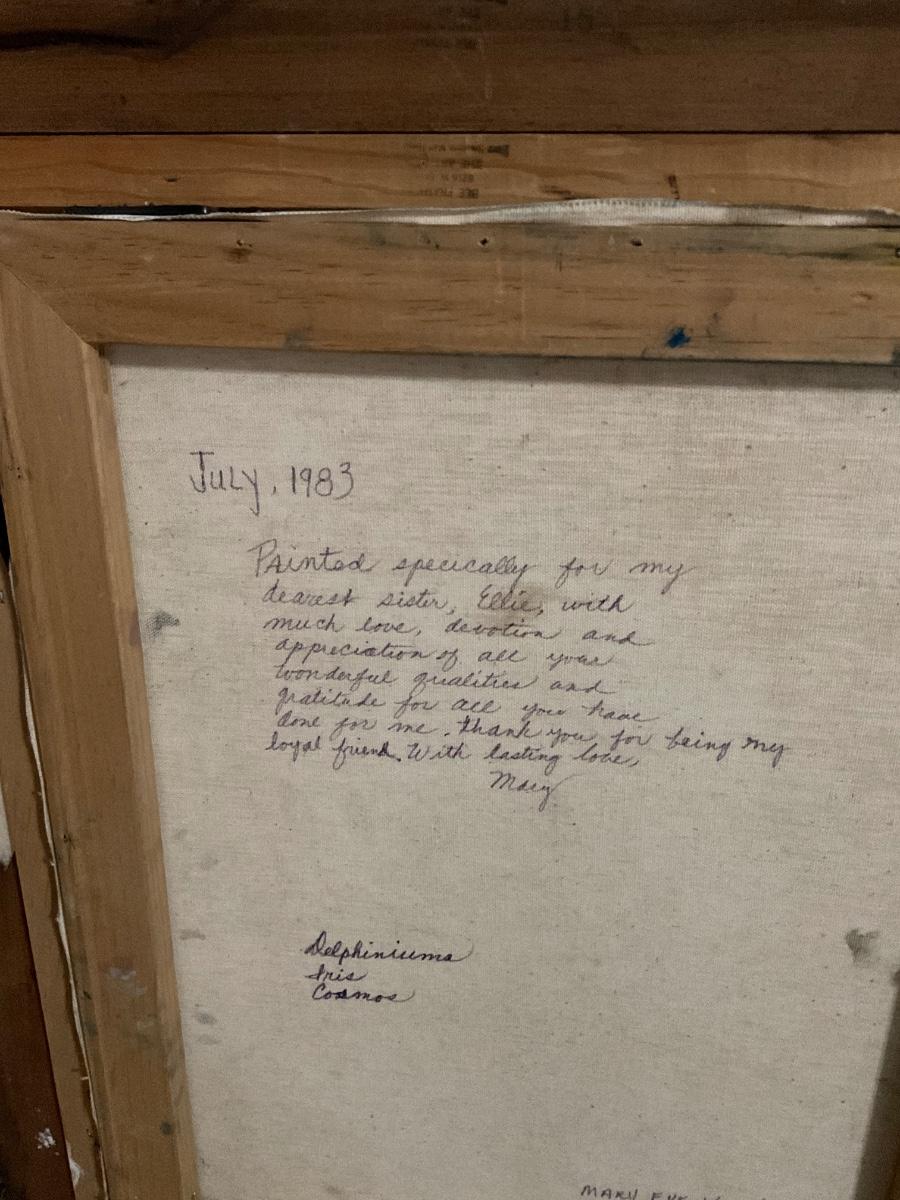 July, 1983
Painted specically for my
dearest sister, Ellie, with
much love, devotion and
appreciation of all your
wonderful qualities and
gratitude for all you have
done for me. Thank you for being my
loyal friend. With lasting love,
Mary
Delphiniums
Iris
Cosmos
MARY